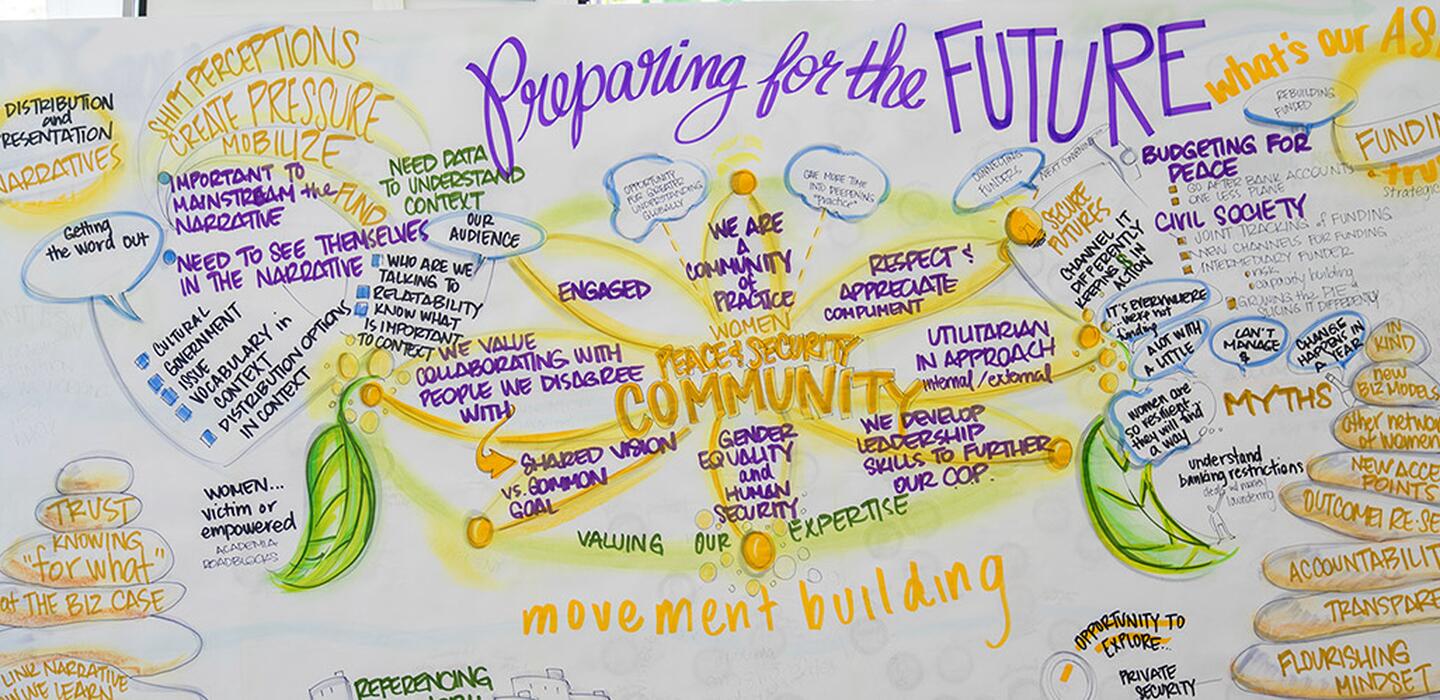 Preparing for the FUTURE
DISTRIBUTION
and
PRESENTATION
NARRATIVES
SHIFT PERCEPTIONS
CREATE PRESSURE
MOBILIZE
IMPORTANT TO
MAINSTREAM the FUND
NARRATIVE
NEED TO SEE THEMSELVES
IN THE NARRATIVE
Getting
the word out
CULTURAL
GOVERNMENT
ISSUE
VOCABULARY in
CONTEXT
DISTRIBUTION OPTIONS
IN CONTEXT
NEED DATA
TO UNDERSTAND
CONTEXT
OUR
AUDIENCE
WHO ARE WE
TALKING TO
RELATABILITY
KNOW WHAT
IS IMPORTANT
TO CONTEXT
OPPORTUNITY
FOR GREATER
UNDERSTANDING
GLOBALLY
GIVE MORE TIME
INTO DEEPENING
"Practice"
CONNECTING
FUNDERS
NEXT CONVENING
WE ARE
A
COMMUNITY
of
PRACTICE
ENGAGED
RESPECT &
APPRECIATE
COMPLIMENT
WE VALUE
COLLABORATING WITH
PEOPLE WE DISAGREE
WITH
WOMEN
PEACE & SECURITY
COMMUNITY
UTILITARIAN
IN APPROACH
internal/external
SHARED VISION
vs. COMMON
GOAL
GENDER
EQUALITY
and
HUMAN
SECURITY
WE DEVELOP
LEADERSHIP
SKILLS TO FURTHER
OUR COP.
VALUING OUR EXPERTISE
movement building
WOMEN...
victim or
empowered
ACADEMIA
ROADBLOCKS
TRUST
KNOWING
"for what"
at THE BIZ CASE
LINK NARRATIVE
WE LEARN
REFERENCING
what's our
REBUILDING
FUNDED
BUDGETING FOR
PEACE
GO AFTER BANK ACCOUNTS
ONE LESS PLANE
CIVIL SOCIETY
JOINT TRACKING of FUNDING
NEW CHANNELS FOR FUNDING
INTERMEDIARY FUNDER
risk
capacity building
GROWING the PIE &
SLICING IT DIFFERENTLY
strategic
SECURE
FUTURES
CHANNEL IT
DIFFERENTLY
KEEPING $ IN
ACTION
IT'S EVERYWHERE
...we're not
finding
A LOT WITH
A LITTLE
CAN'T
MANAGE
$
CHANGE
HAPPENS IN
A YEAR
women are
so resilient
they will find
a way
MYTHS
understand
banking restrictions
laundering
IN
KIND
new
BIZ MODELS
other network
of women
NEW ACCE
POINTS
ACCOUNTABILIT
TRANSPARE
FLOURISHING
MINDSET
OPPORTUNITY TO
EXPLORE...
PRIVATE
SECURITY